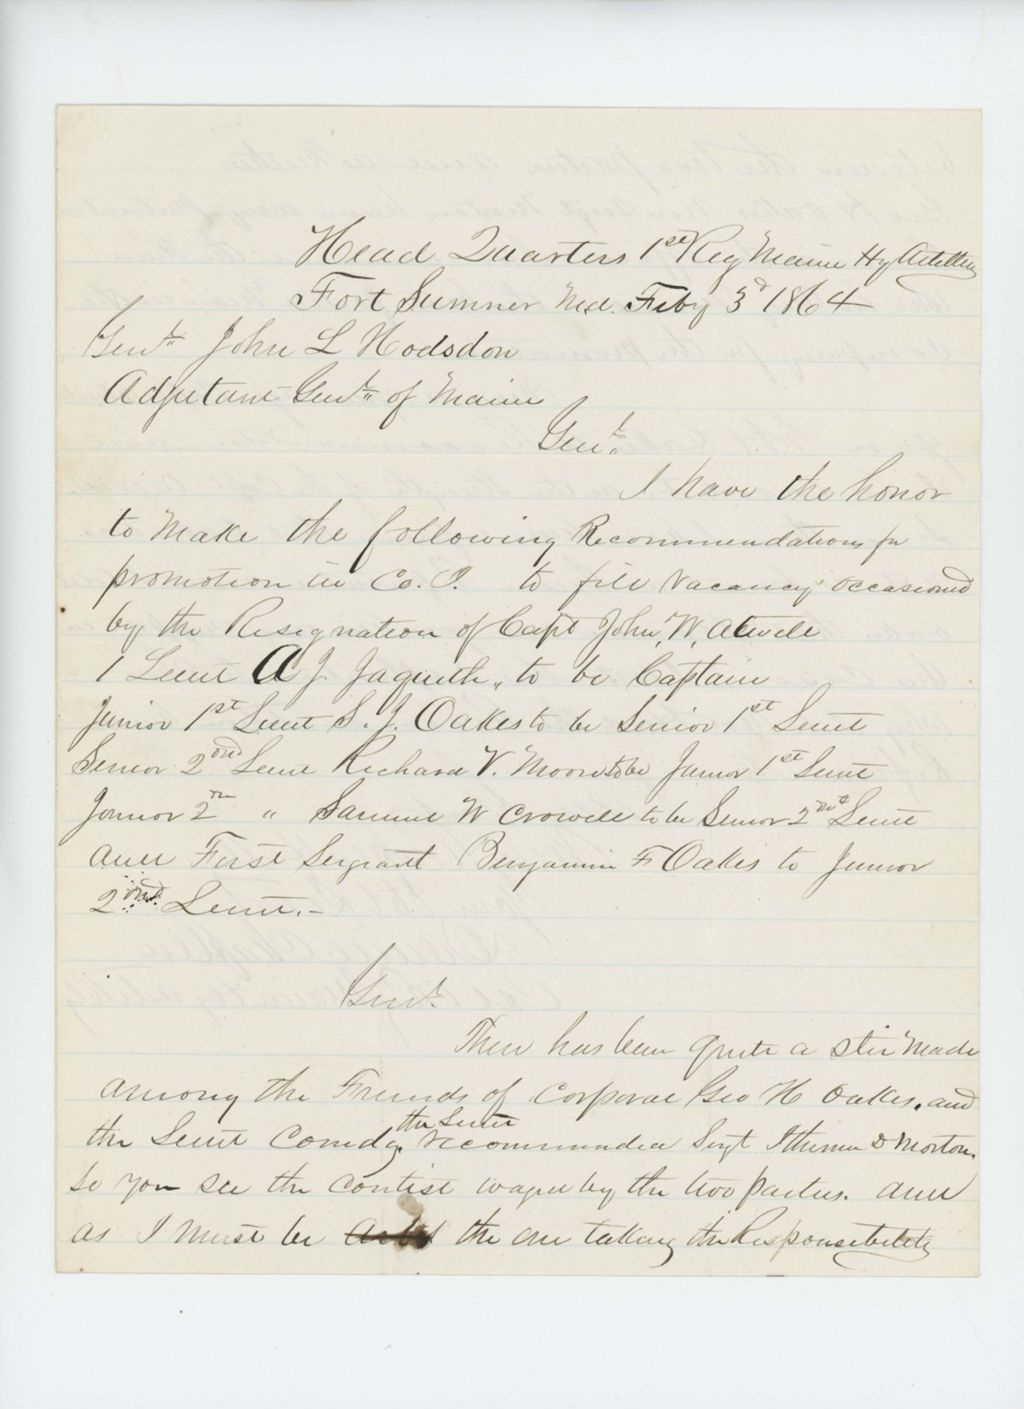 Head Quarters 1st Reg Maine Hy Artillery
Fort Sumner Md. Feby 3d 1864
Genl John L Hodsdon
Adjutant Genl of Maine
Genl.
I have the honor
to make the following Recommendations for
promotion in Co. I. to fill vacancy occasioned
by the Resignation of Capt John, W, Atwell
1 Lieut A J. Jaquith, to be Captain
Junior 1st Lieut S. J. Oakes to be Senior 1st Lieut
Senior 2ond Lieut Richard V. Moore to be Junior 1st Lieut
Jounior 2nd " Samuel W Crowell to be Senior 2nd Lieut
and First Sergeant Benjamin F Oakes to Junior
2ond Lieut.-
Genl.
Ther has been quite a stir made
among the Friends of Corporal Geo H Oakes. and
the Lieut Comdg. the Lieut recommended Sergt D Morton.
So you see the contest waged by the two parties. and
as I must be the one taking the Responsebility